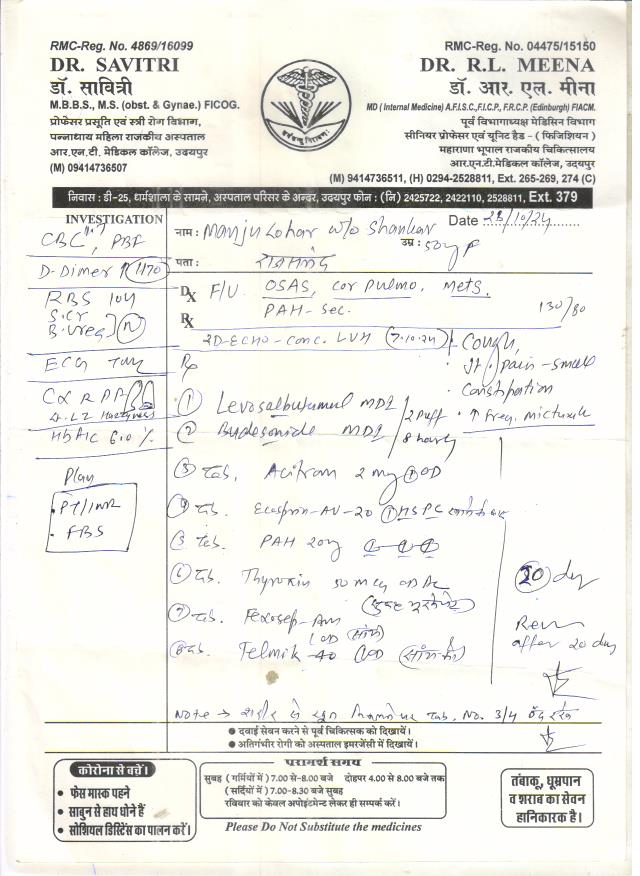 RMC-Reg. No. 4869/16099
DR. SAVITRI
डॉ. सावित्री
M.B.B.S., M.S. (obst. & Gynae.) FICOG.
प्रोफेसर प्रसूति एवं स्त्री रोग विभाग,
पन्नाधाय महिला राजकीय अस्पताल
आर.एन.टी. मेडिकल कॉलेज, उदयपुर
(M) 09414736507
RMC-Reg. No. 04475/15150
DR. R.L. MEENA
डॉ. आर. एल. मीना
MD ( Internal Medicine) A.F.I.S.C.,F.I.C.P., F.R.C.P. (Edinburgh) FIACM.
पूर्व विभागाध्यक्ष मेडिसिन विभाग
सीनियर प्रोफेसर एवं यूनिट हैड - ( फिजिशियन )
महाराणा भूपाल राजकीय चिकित्सालय
आर.एन.टी.मेडिकल कॉलेज, उदयपुर
(M) 9414736511, (H) 0294-2528811, Ext. 265-269, 274 (C)
निवास : डी-25, धर्मशाला के सामने, अस्पताल परिसर के अन्दर, उदयपुर फोन : (नि) 2425722, 2422110, 2528811, Ext. 379
INVESTIGATION
CBC, PBF
D-Dimer ↑ 1170
RBS 104
S.Cr
B.Urea (n)
ECG
HbA1C 6.0 %
Plan
PT/INR
FBS
नाम : Manju Lohar w/o Shankar
Date 23/10/24
उम्र : 50y F
पता : राजसमंद
Dx F/U OSAS, cor pulmo, Mets.
PAH - sec.
130/80
Rx
2D-ECHO - Conc. LVH (7.10.24)
Cough,
pain
Constipation
↑ Freq. micturition
Rx
① Levosalbutamol MDI
② Budesonide MDI
2 puff
8 hourly
③ Tab. Acitrom 2 mg ① OD
④ Tab. Ecosprin-AV-20 ① HS PC
⑤ Tab. PAH 20mg
⑥ Tab. Thyrokin 50 mcg OD AC
⑦ Tab.
OD
⑧ Tab. Telmik-40 OD
20 day
Rev
after 20 day
Note → शरीर से खून Tab. No. 3/4 बंद
● दवाई सेवन करने से पूर्व चिकित्सक को दिखायें।
● अतिगंभीर रोगी को अस्पताल इमरजेंसी में दिखायें।
कोरोना से बचें।
● फेस मास्क पहने
● साबुन से हाथ धोने हैं
● सोशियल डिस्टेंस का पालन करें।
परामर्श समय
सुबह ( गर्मियों में ) 7.00 से-8.00 बजे दोहपर 4.00 से 8.00 बजे तक
( सर्दियों में ) 7.00-8.30 बजे सुबह
रविवार को केवल अपोइंटमेन्ट लेकर ही सम्पर्क करें।
Please Do Not Substitute the medicines
तंबाकू, धूम्रपान
व शराब का सेवन
हानिकारक है।